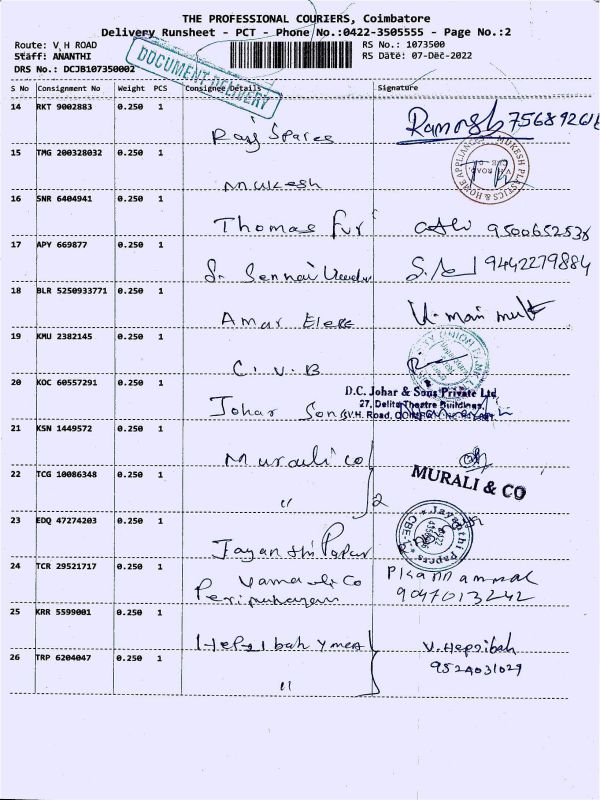 THE PROFESSIONAL COURIERS, Coimbatore
Delivery Runsheet - PCT - Phone No.:0422-3505555 - Page No.:2
Route: V H ROAD
RS No.: 1073500
Staff: ANANTHI
RS Date: 07-Dec-2022
DRS No.: DCJB107350002
DOCUMENT DELIVERY
S No Consignment No Weight PCS Consignee Details Signature
14 RKT 9002883 0.250 1
Raj Spares
15 TMG 200328032 0.250 1
MUKESH PLASTICS & HOME APPLIANCES
V.H. ROAD,
Mukesh
16 SNR 6404941 0.250 1
Thomas Fur 9500652538
17 APY 669877 0.250 1
Sri Sennai 9442279884
18 BLR 5250933771 0.250 1
Amar Elere
19 KMU 2382145 0.250 1
C.V.B
20 KOC 60557291 0.250 1
D.C. Johar & Sons Private Ltd
27, Delite Theatre Buildings,
V.H. Road,
Johar Sons
21 KSN 1449572 0.250 1
Murauli co
22 TCG 10086348 0.250 1
MURALI & CO
" 2
23 EDQ 47274203 0.250 1
Jayanthi Papers
CBE-1
Jayanthi Paper
24 TCR 29521717 0.250 1
9047013242
25 KRR 5599001 0.250 1
Hepzibah Ymca V. Hepzibah
26 TRP 6204047 0.250 1
9524031029
"